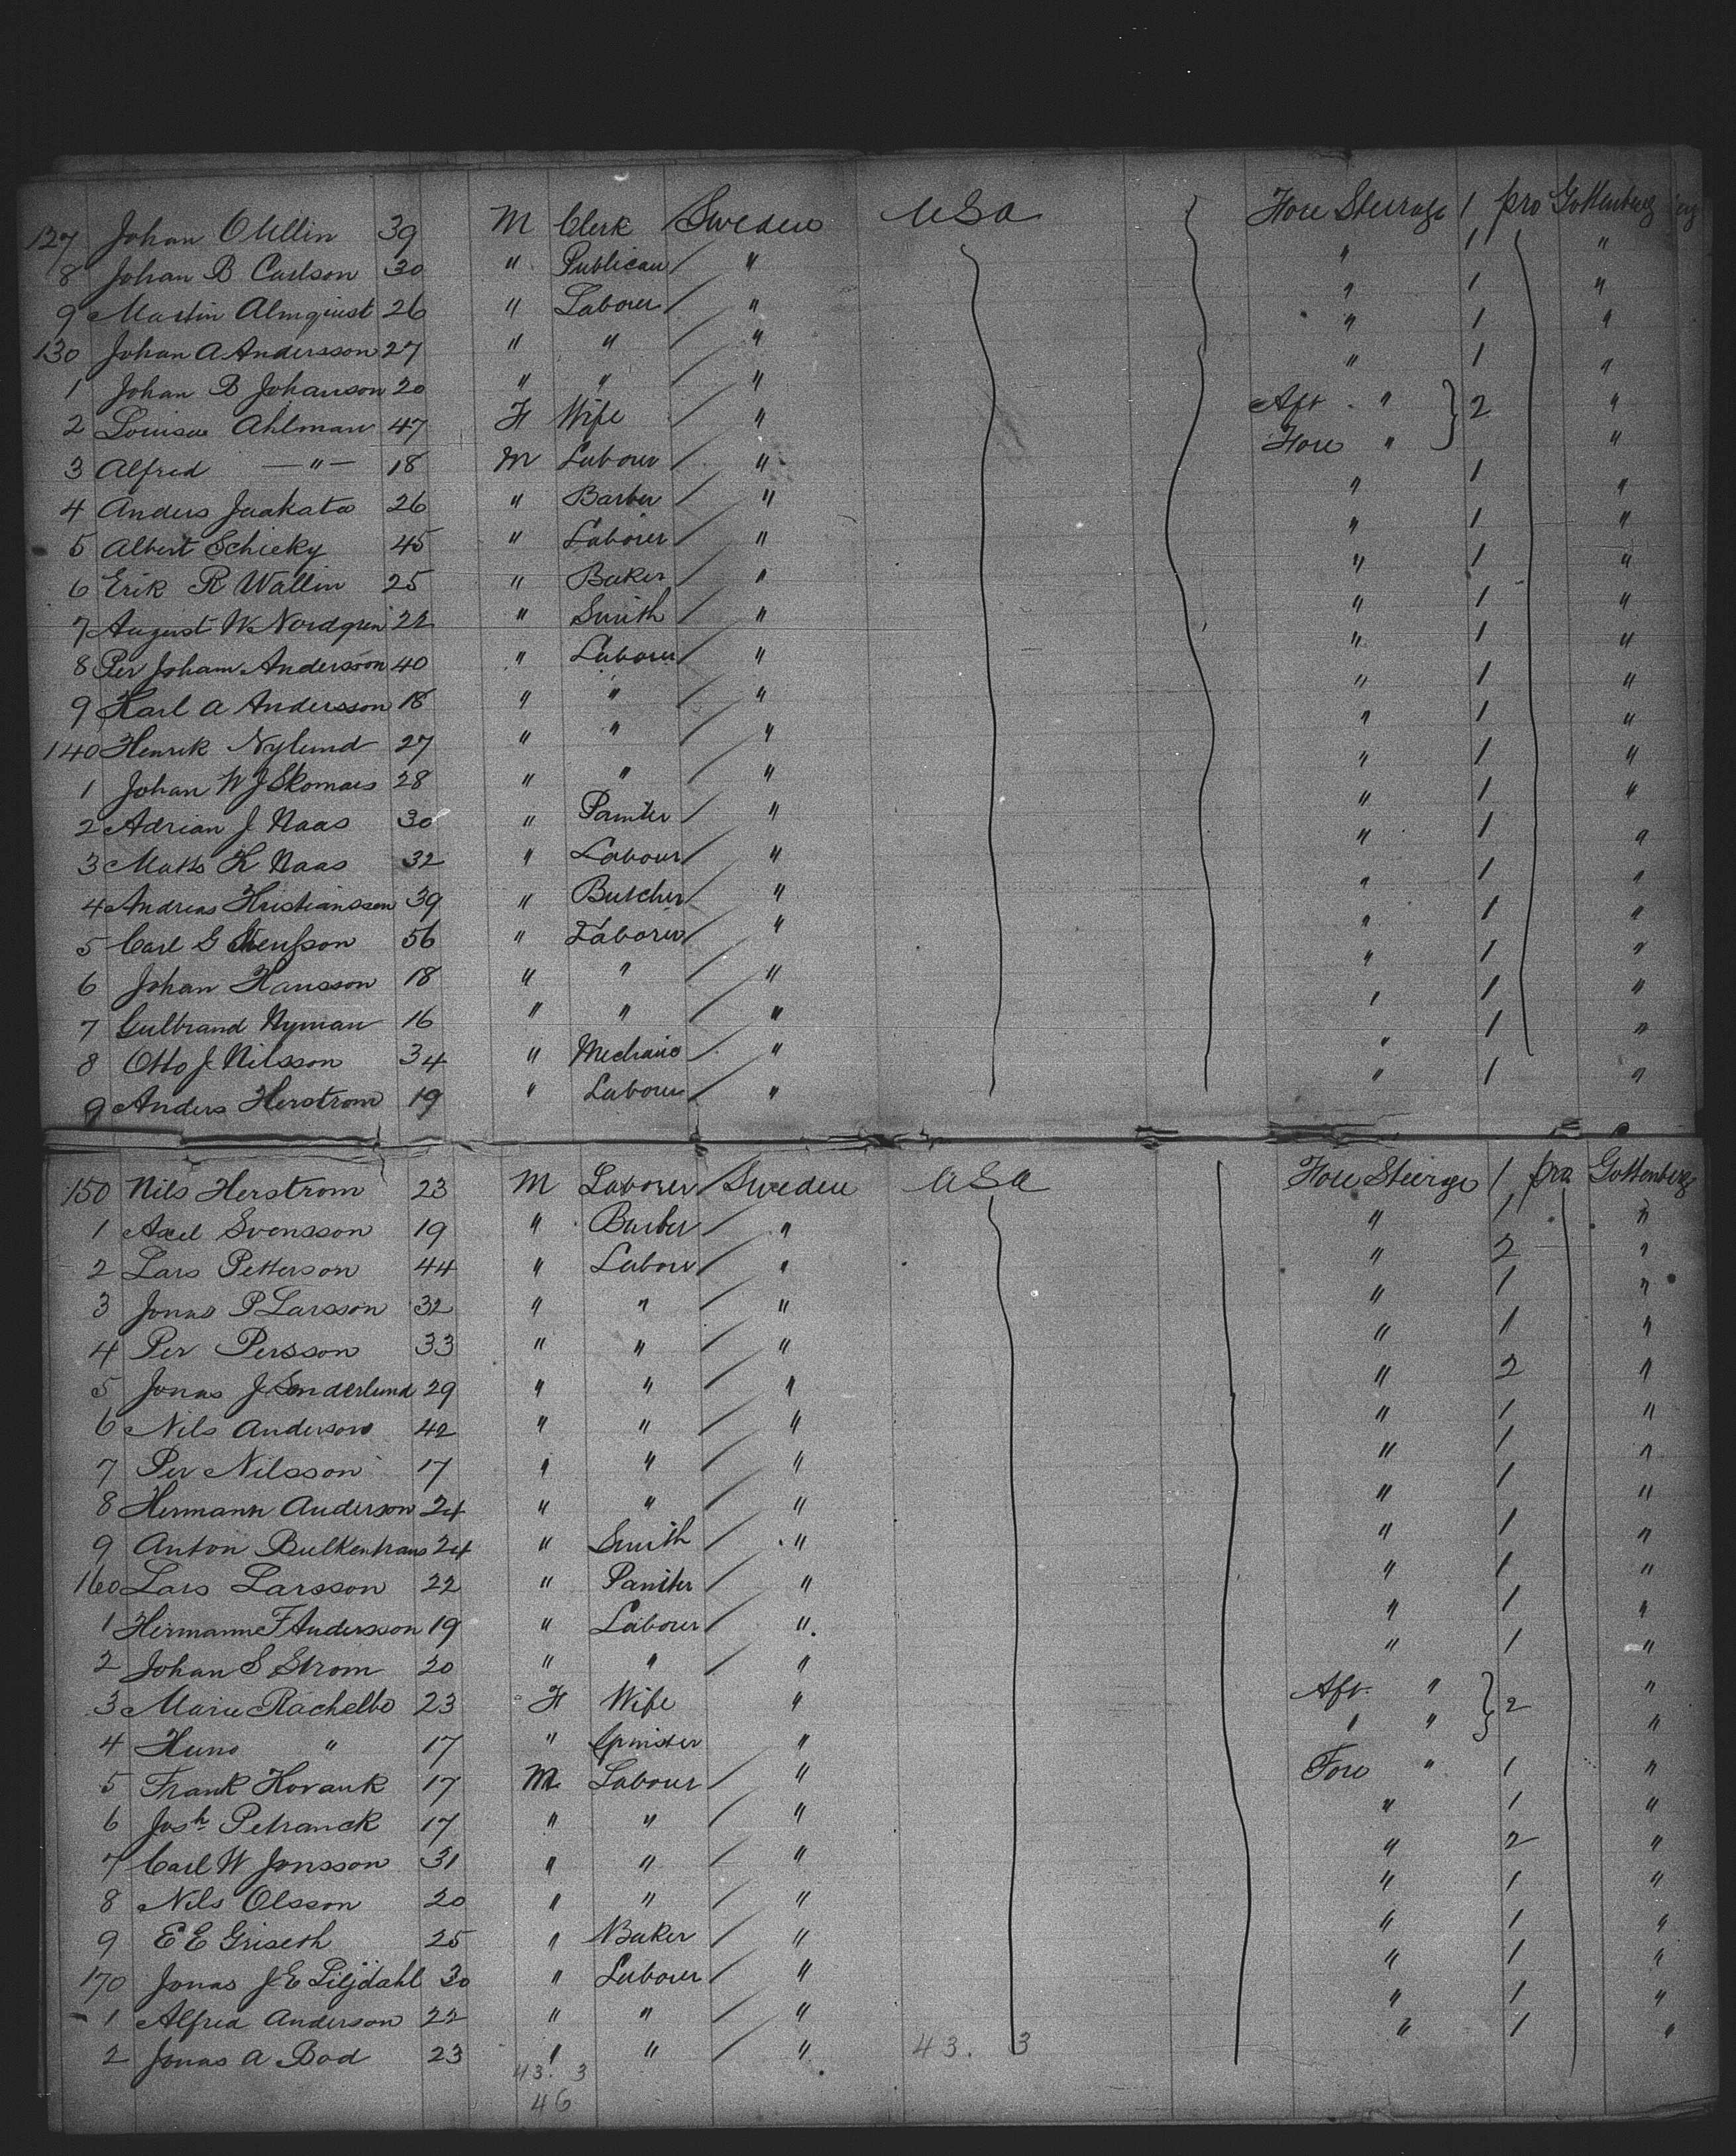 127 Johan O Ullin 39 M Clerk / Sweden USA Fore Steerage 1 pro Gottenberg
8 Johan B Carlson 30 " Publican / " " 1 "
9 Martin Almquist 26 " Labourer / " " 1 "
130 Johan A Andersson 27 " " / " " 1 "
1 Johan B Johanson 20 " " / " " 1 "
2 Louisa Ahlman 47 F Wife " Aft " } 2 "
3 Alfred —"— 18 M Labourer / " Fore " "
4 Anders Jaakata 26 " Barber / " " 1 "
5 Albert Schieky 45 " Laborer / " " 1 "
6 Erik R Wallin 25 " Baker / " " 1 "
7 August W Nordgren 22 " Smith / " " 1 "
8 Per Joham Andersson 40 " Laborer / " " 1 "
9 Karl A Andersson 18 " " / " " 1 "
140 Henrik Nylund 27 " " / " " 1 "
1 Johan W J Skomars 28 " " / " " 1 "
2 Adrian J Naas 30 " Painter / " " 1 "
3 Matts K Naas 32 " Labour / " " 1 "
4 Andreas Kristiansson 39 " Butcher / " " 1 "
5 Carl G 56 " Laborer / " " 1 "
6 Johan Hansson 18 " " / " " 1 "
7 Gulbrand Nyman 16 " " / " " 1 "
8 Otto J Nilsson 34 " Mechanic " " 1 "
9 Anders Herstrom 19 " Labourer / " " 1 "
150 Nils Herstrom 23 M Laborer / Sweden USA Fore Steerage 1 pro Gottenberg
1 Axel Svensson 19 " Barber / " " 1 "
2 Lars Petterson 44 " Labour / " " 2 "
3 Jonas P Larsson 32 " " / " " 1 "
4 Per Persson 33 " " / " " 1 "
5 Jonas J Sonderlund 29 " " / " " 2 "
6 Nils Anderson 42 " " / " " 1 "
7 Per Nilsson 17 " " / " " 1 "
8 Hermann Anderson 24 " " / " " 1 "
9 Anton Bulkenhans 24 " Smith / " " 1 "
160 Lars Larsson 22 " Painter / " " 1 "
1 Hermann F Andersson 19 " Labourer / " " 1 "
2 Johan S Strom 20 " " / " " 1 "
3 Marie Rachelbo 23 F Wife " Aft " } 2 "
4 Huno " 17 " Spinster " " " "
5 Frank Kovank 17 M Labour / " Fore " 1 "
6 Josh Petranck 17 " " / " " 1 "
7 Carl W Jonsson 31 " " / " " 2 "
8 Nils Olsson 20 " " / " " 1 "
9 E E Griseth 25 " Baker / " " 1 "
170 Jonas J E Liljdahl 30 " Laborer / " " 1 "
1 Alfred Anderson 22 " " / " " 1 "
2 Jonas A Bod 23 " " / " " 1 "
43. 3 43. 3
46